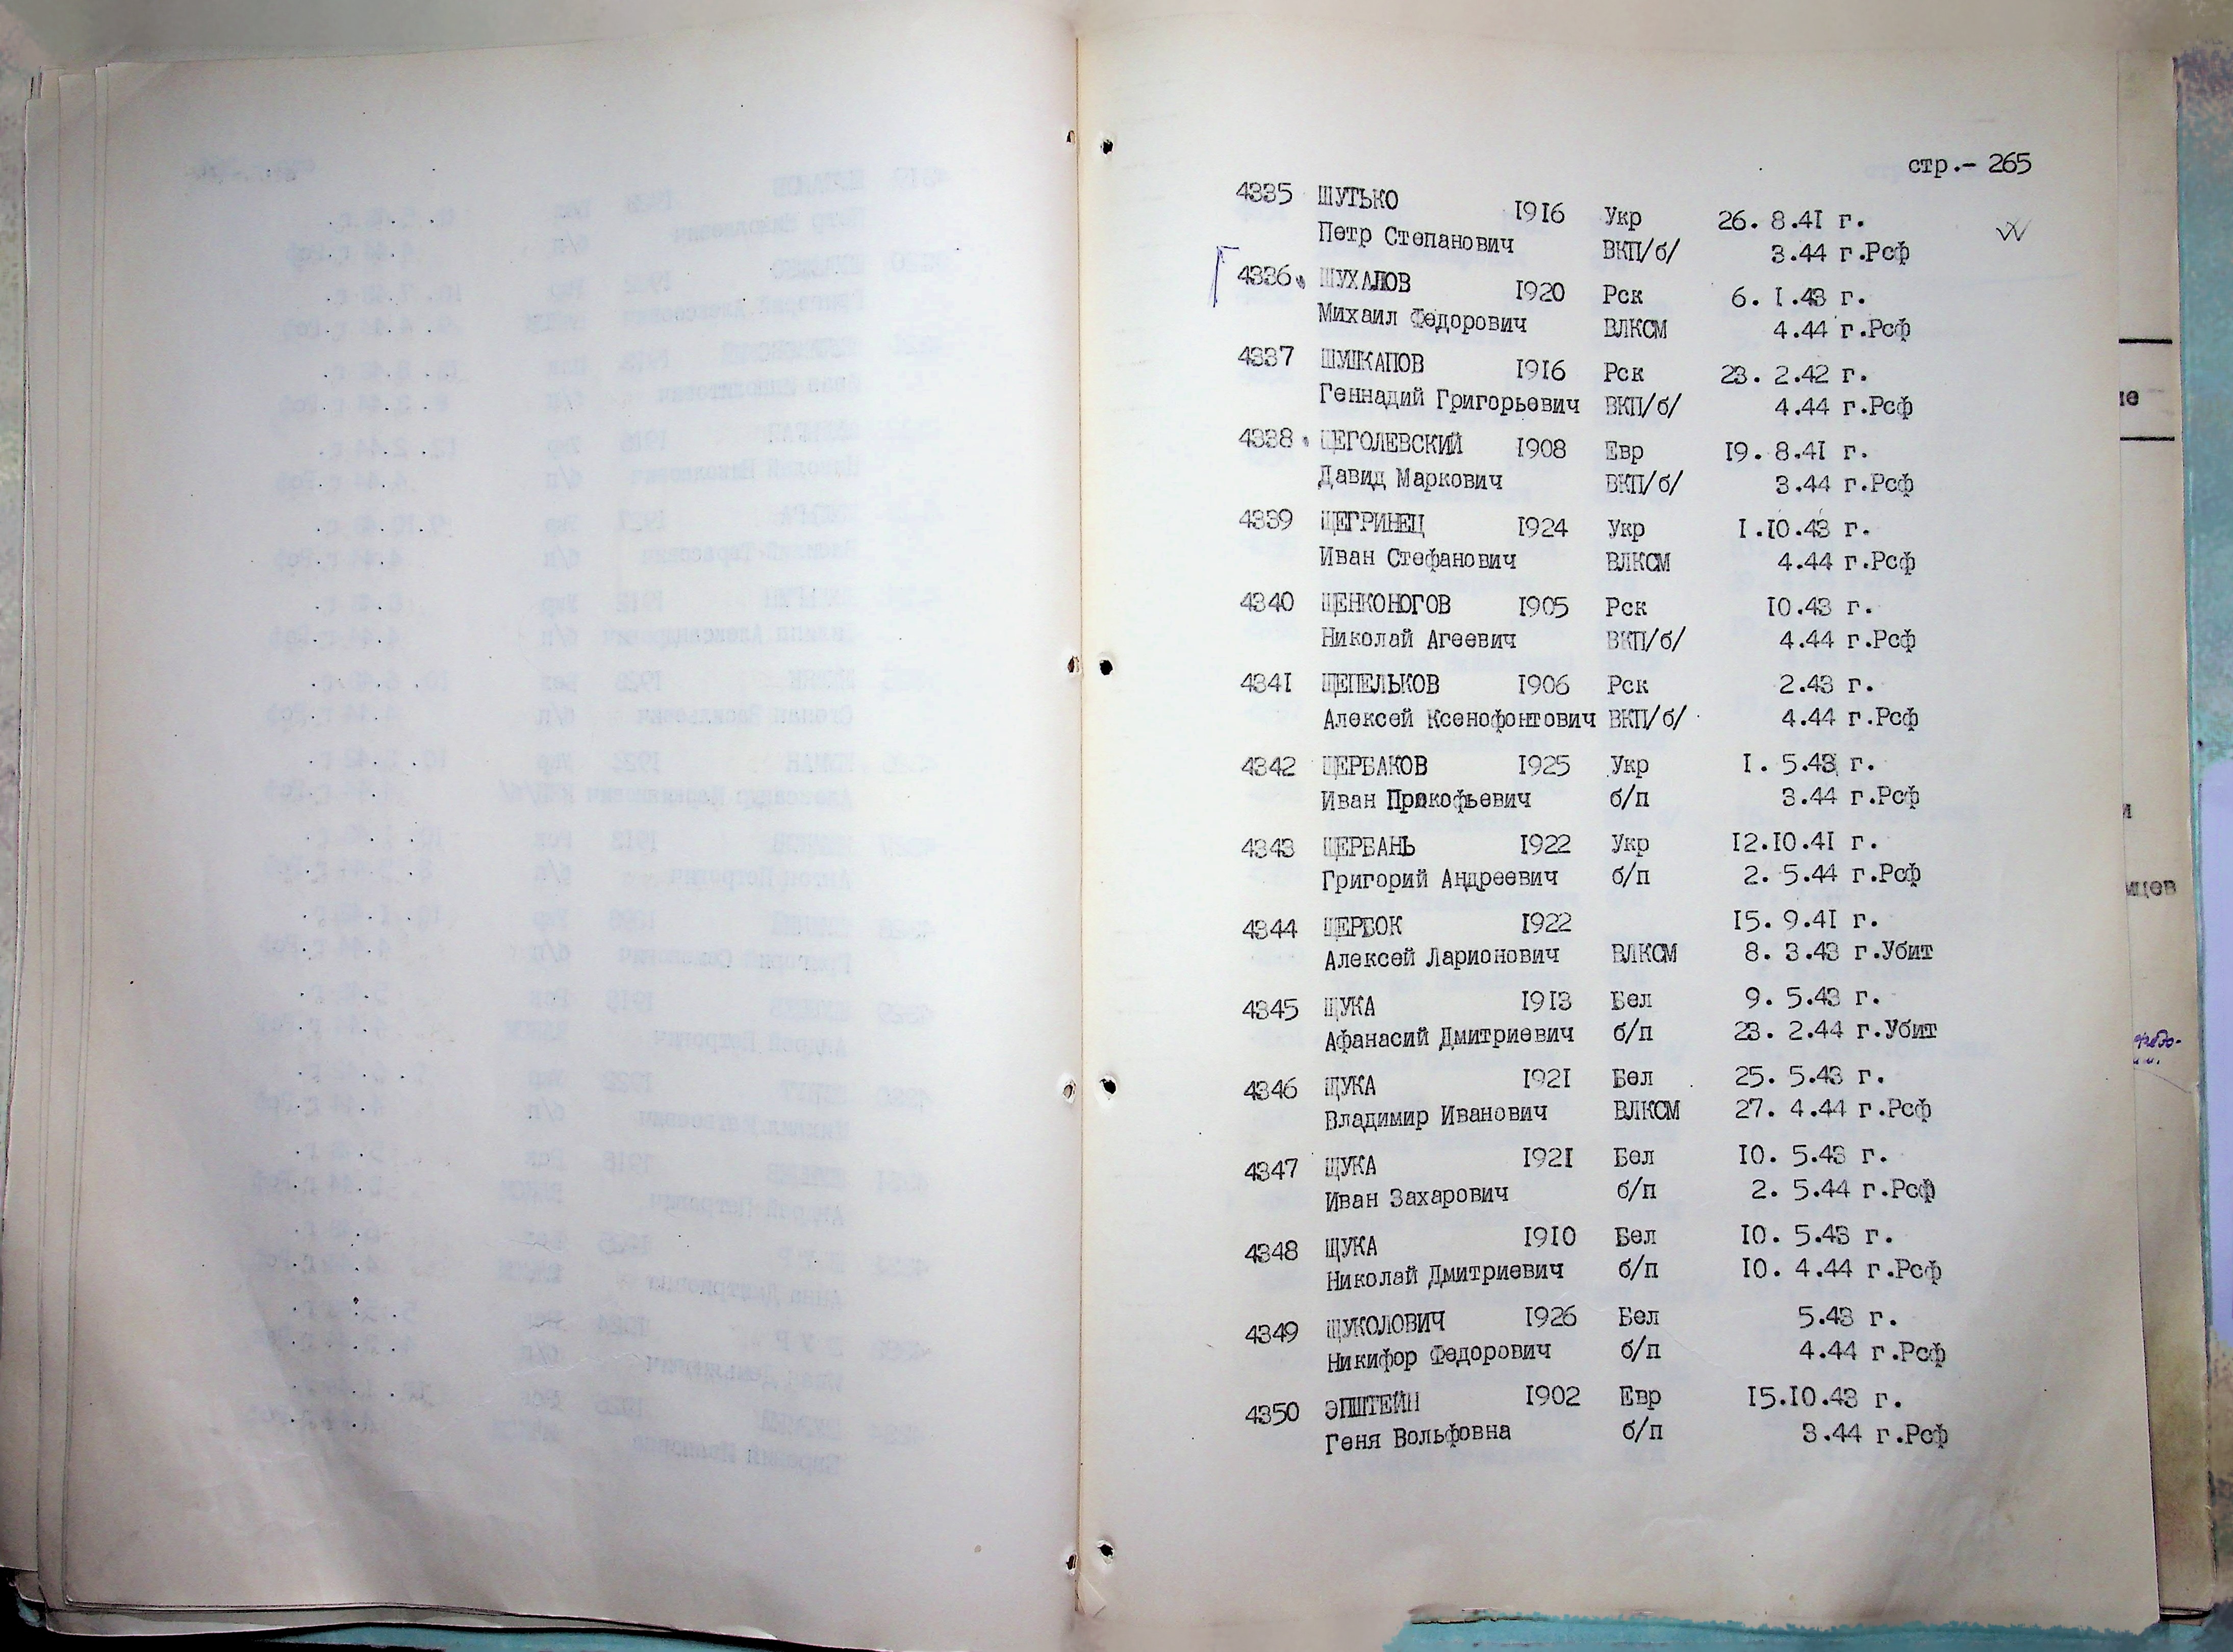 стр.- 265
4335 ШУТЬКО 1916 Укр 26. 8.41 г.
Петр Степанович ВКП/б/ 3.44 г.Рсф
4336 ШУХАЛОВ 1920 Рск 6. 1.43 г.
Михаил Федорович ВЛКСМ 4.44 г.Рсф
4337 ШУШКАПОВ 1916 Рск 23. 2.42 г.
Геннадий Григорьевич ВКП/б/ 4.44 г.Рсф
4338 ЩЕГОЛЕВСКИЙ 1908 Евр 19. 8.41 г.
Давид Маркович ВКП/б/ 3.44 г.Рсф
4339 ЩЕГРИНЕЦ 1924 Укр 1.10.43 г.
Иван Стефанович ВЛКСМ 4.44 г.Рсф
4340 ЩЕНКОНОГОВ 1905 Рск 10.43 г.
Николай Агеевич ВКП/б/ 4.44 г.Рсф
4341 ЩЕПЕЛЬКОВ 1906 Рск 2.43 г.
Алексей Ксенофонтович ВКП/б/ 4.44 г.Рсф
4342 ЩЕРБАКОВ 1925 Укр 1. 5.43 г.
Иван Прокофьевич б/п 3.44 г.Рсф
4343 ЩЕРБАНЬ 1922 Укр 12.10.41 г.
Григорий Андреевич б/п 2. 5.44 г.Рсф
4344 ЩЕРБОК 1922 15. 9.41 г.
Алексей Ларионович ВЛКСМ 8. 3.43 г.Убит
4345 ЩУКА 1913 Бел 9. 5.43 г.
Афанасий Дмитриевич б/п 23. 2.44 г.Убит
4346 ЩУКА 1921 Бел 25. 5.43 г.
Владимир Иванович ВЛКСМ 27. 4.44 г.Рсф
4347 ЩУКА 1921 Бел 10. 5.43 г.
Иван Захарович б/п 2. 5.44 г.Рсф
4348 ЩУКА 1910 Бел 10. 5.43 г.
Николай Дмитриевич б/п 10. 4.44 г.Рсф
4349 ЩУКОЛОВИЧ 1926 Бел 5.43 г.
Никифор Федорович б/п 4.44 г.Рсф
4350 ЭПШТЕЙН 1902 Евр 15.10.43 г.
Геня Вольфовна б/п 3.44 г.Рсф